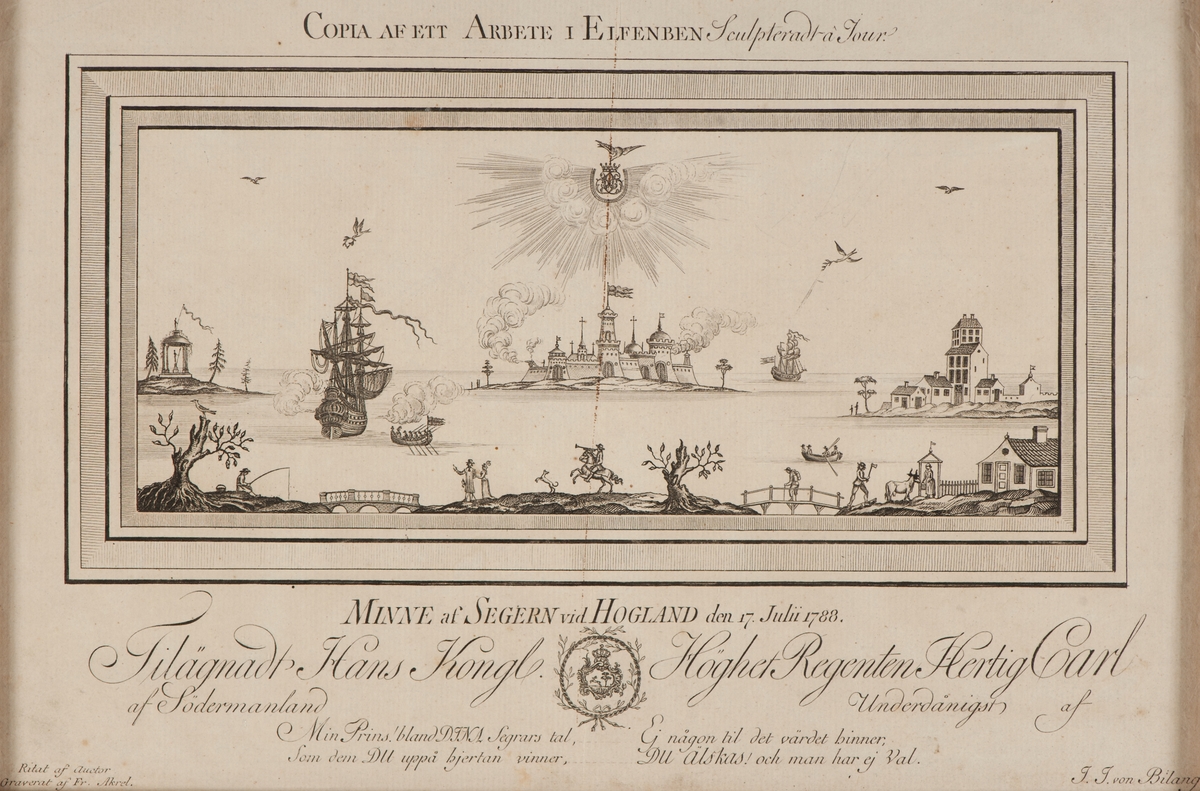 COPIA AF ETT ARBETE I ELFENBEN Sculpteradt à Jour.
MINNE af SEGERN vid HOGLAND den 17. Julii 1788.
Tilägnadt Hans Kongl. Höghet Regenten Hertig Carl
af Södermanland Underdånigst af
Min Prins! bland DINA Segrars tal,
Som dem DU uppå hjertan vinner,
Ej någon til det värdet hinner,
DU Älskas! och man har ej Val.
Ritat af Auctor
Graverat af Fr. Akrel.
J. J. von Bilang